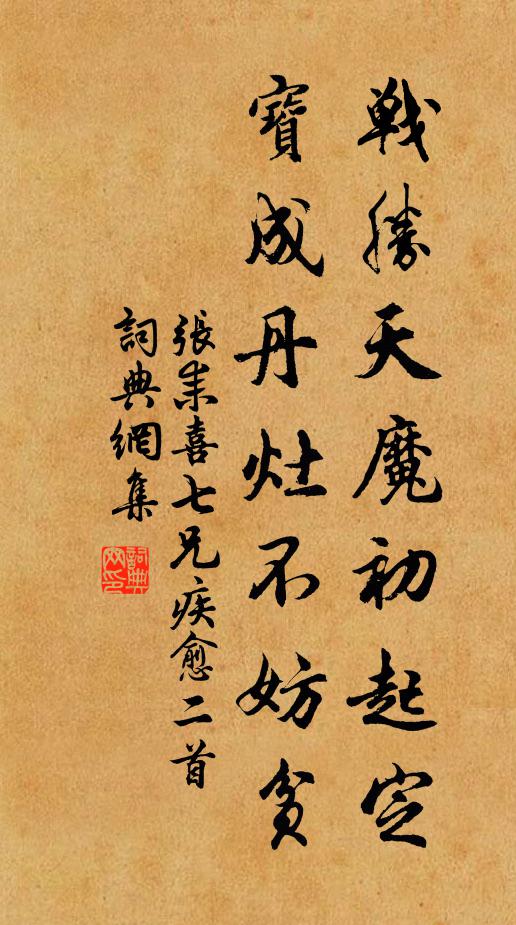 戰勝天魔初起定
寶成丹灶不妨貧
張耒喜七兄疾愈二首
詞典網集